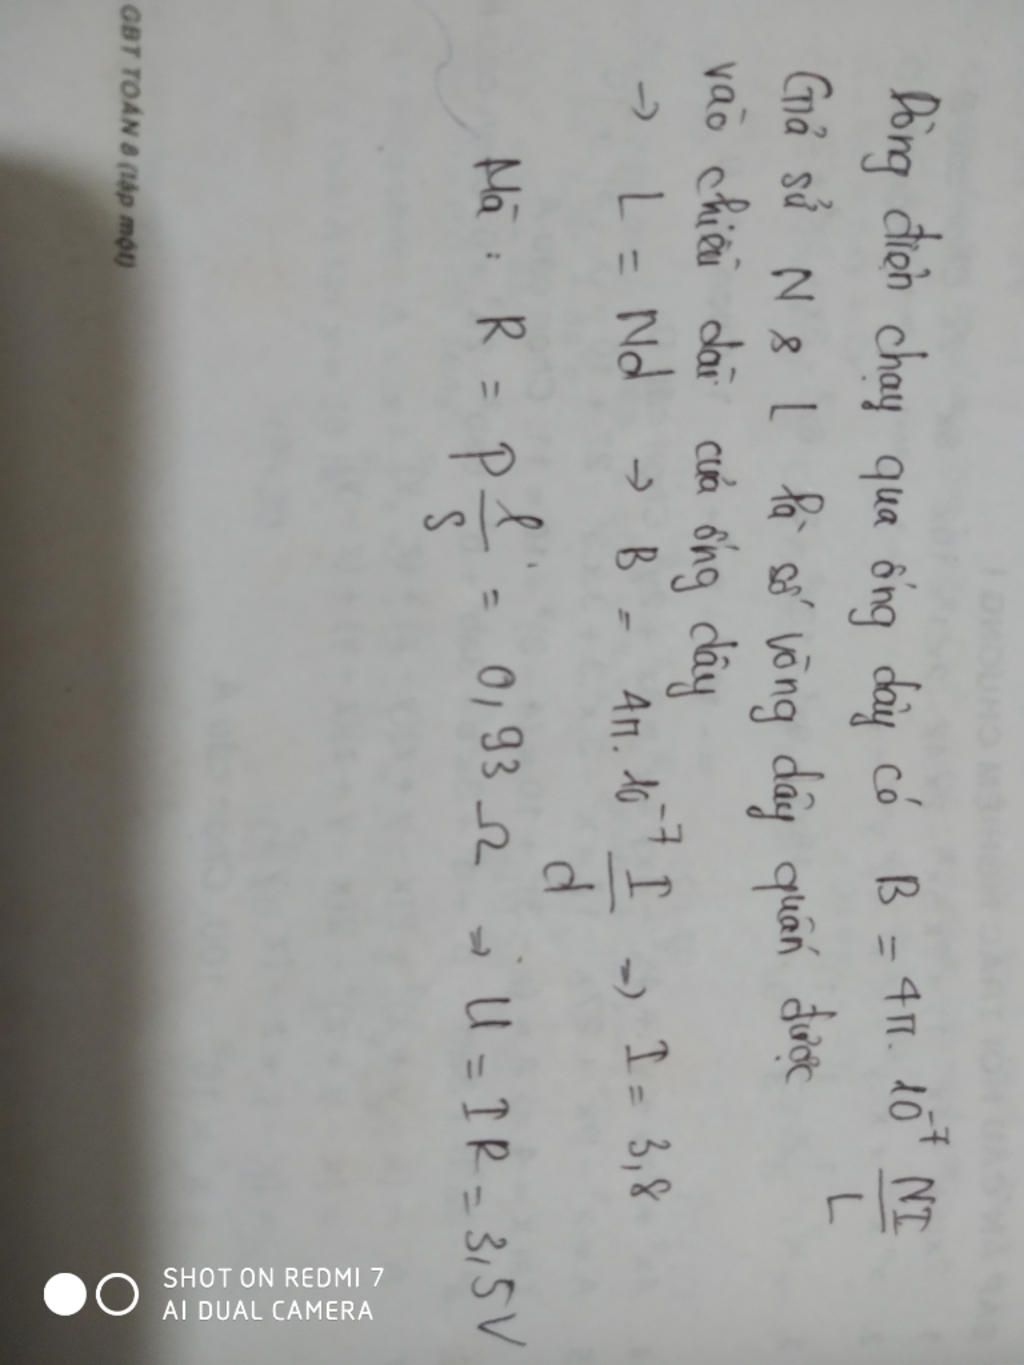 Dòng điện chạy qua ống dây có B = 4π. 10⁻⁷ NI/L
Giả sử N & L là số vòng dây quấn được
vào chiều dài của ống dây
→ L = Nd → B = 4π. 10⁻⁷ I/d → I = 3,8
Mà : R = ρ l/S = 0,93 Ω → U = IR = 3,5V
GBT TOÁN 8 (tập một)
SHOT ON REDMI 7
AI DUAL CAMERA